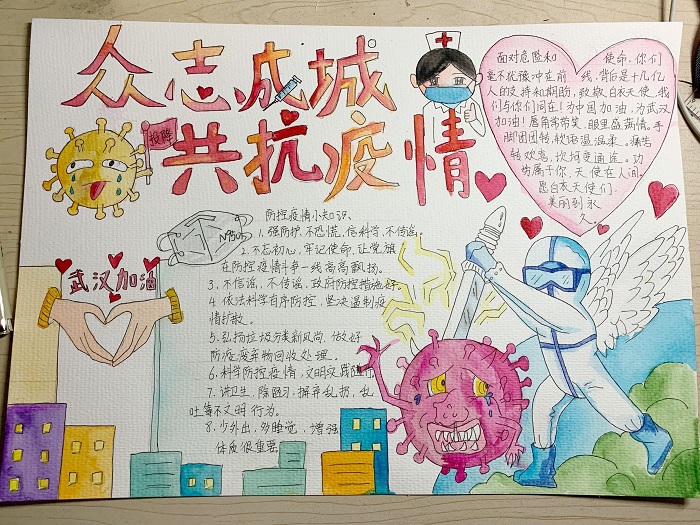 众志成城
共抗疫情
投降
N95
武汉加油
防控疫情小知识、
1、强防护,不恐慌,信科学,不传谣。
2、不忘初心,牢记使命,让党旗
在防控疫情斗争一线高高飘扬。
3、不信谣,不传谣,政府防控措施好。
4、依法科学有序防控,坚决遏制疫
情扩散。
5、弘扬垃圾分类新风尚,做好
防疫废弃物回收处理。
6、科学防控疫情,文明实践随行
7、讲卫生,除陋习,摒弃乱扔、乱
吐等不文明行为。
8、少外出,多睡觉,增强
体质很重要
面对危险和 使命,你们
毫不犹豫冲在前 线,背后是十几亿
人的支持和期盼,致敬白衣天使,我
们与你们同在!为中国加油,为武汉
加油!唇角常带笑,眼里盛满情。手
脚团团转,软语温温柔。痛苦
转欢乐,坎坷变通途。功
劳属于你,天使在人间,
愿白衣天使们
美丽到永
久。